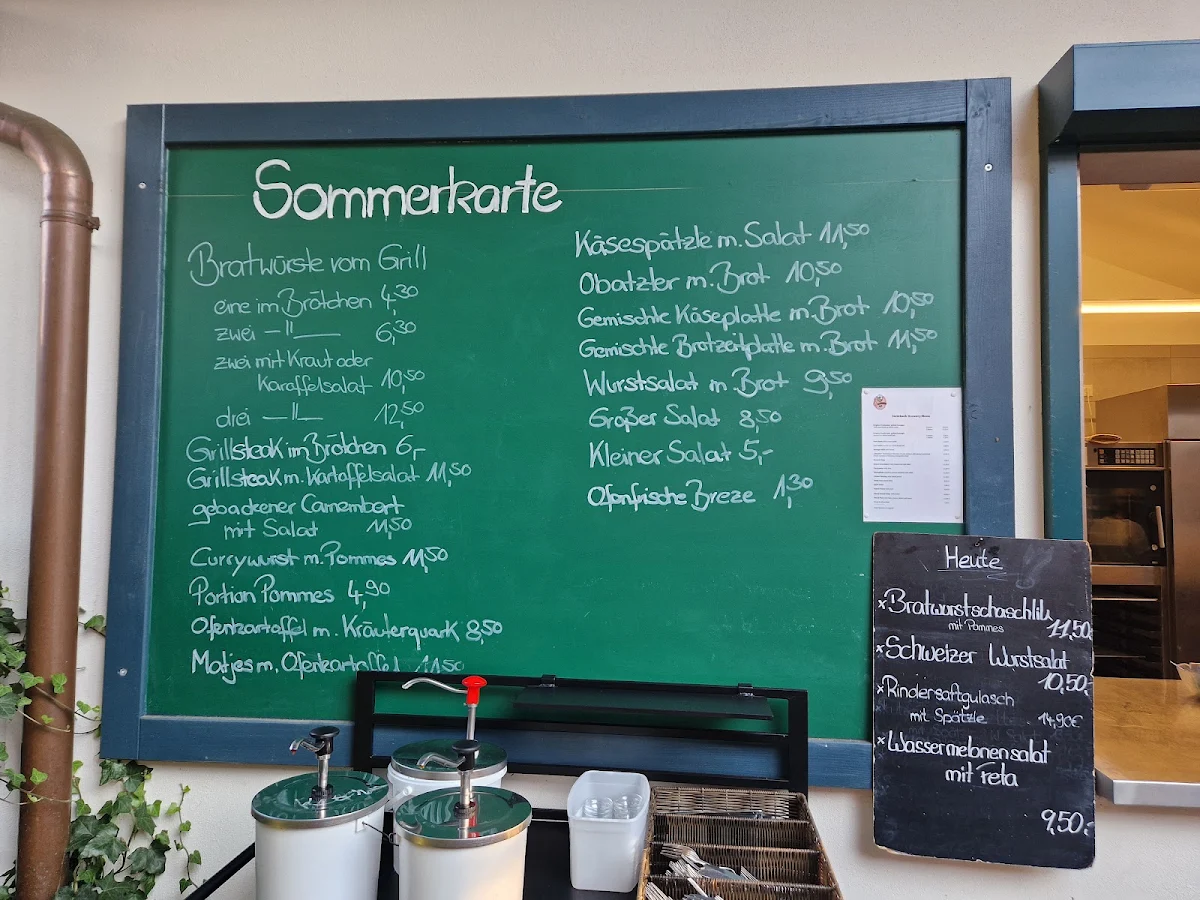 Sommerkarte
Bratwürste vom Grill
eine im Brötchen 4,30
zwei —"— 6,30
zwei mit Kraut oder
Karaffelsalat 10,50
drei —"— 12,50
Grillsteak im Brötchen 6,-
Grillsteak m. Kartoffelsalat 11,50
gebackener Camembert
mit Salat 11,50
Currywurst m. Pommes 11,50
Portion Pommes 4,90
Ofenkartoffel m. Kräuterquark 8,50
Matjes m. Ofenkartoffel 11,50
Käsespätzle m. Salat 11,50
Obatzter m. Brot 10,50
Gemischte Käseplatte m. Brot 10,50
Gemischte Brotzeitplatte m. Brot 11,50
Wurstsalat m. Brot 9,50
Großer Salat 8,50
Kleiner Salat 5,-
Ofenfrische Breze 1,30
Heute
x Bratwurstschaschlik
mit Pommes 11,50
x Schweizer Wurstsalat
10,50
x Rindersaftgulasch
mit Spätzle 14,90€
x Wassermelonensalat
mit Feta
9,50